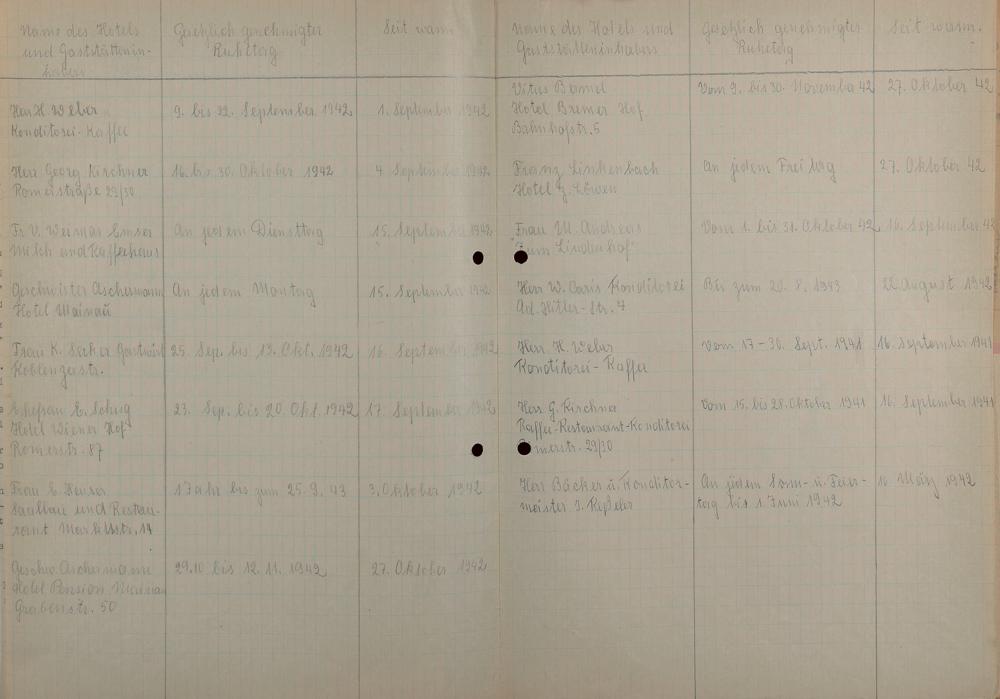 Name des Hotels
und Gaststättenin-
habers
Gesetzlich genehmigter
Ruhetag
Seit wann
Herr H. Weber
Konditorei-Kaffee
9. bis 22. September 1942
1. September 1942
Herr Georg Kirchner
Römerstraße 29/30
16. bis 30. Oktober 1942
4. September 1942
Fr. V. Werner Emser
Milch und Kaffeehaus
An jedem Dienstag
15. September 1942
Geschwister Aschermann
Hotel Mainau
An jedem Montag
15. September 1942
Frau K. Gastwirt
Koblenzerstr.
25. Sep. bis 13. Okt. 1942
16. September 1942
Ehefrau E. Schug
Hotel Wiener Hof
Römerstr. 87
23. Sep. bis 20. Okt. 1942
17. September 1942
Frau E. Heuser
Saalbau und Restau-
rant Marktstr. 14
1 Jahr bis zum 25.9.43
3. Oktober 1942
Geschw. Aschermann
Hotel Pension
Grabenstr. 50
29.10 bis 12.11.1942
27. Oktober 1942
Name des Hotels und
Gaststätteninhabers
Gesetzlich genehmigter
Ruhetag
Seit wann.
Vitus
Hotel Bremer Hof
Bahnhofstr. 5
Vom 9. bis 30. November 42
27. Oktober 42
Franz Linkenbach
Hotel z. Löwen
An jedem Freitag
27. Oktober 42
Frau M. Andreas
"Zum Lindenhof"
Vom 1. bis 31. Oktober 42
16. September 42
Herr W. Caris Konditorei
Ad. Hitler-Str. 7
Bis zum 20.8.1943
22. August 1942
Herr H. Weber
Konditorei-Kaffee
Vom 17-30. Sept. 1941
16. September 1941
Herr G. Kirchner
Kaffee-Restaurant-Konditorei
Römerstr. 29/30
Vom 15. bis 28. Oktober 1941
16. September 1941
Herr Bäcker u. Konditor-
meister J.
An jedem Sonn- u. Feier-
tag bis 1. Juni 1942
10. März 1942